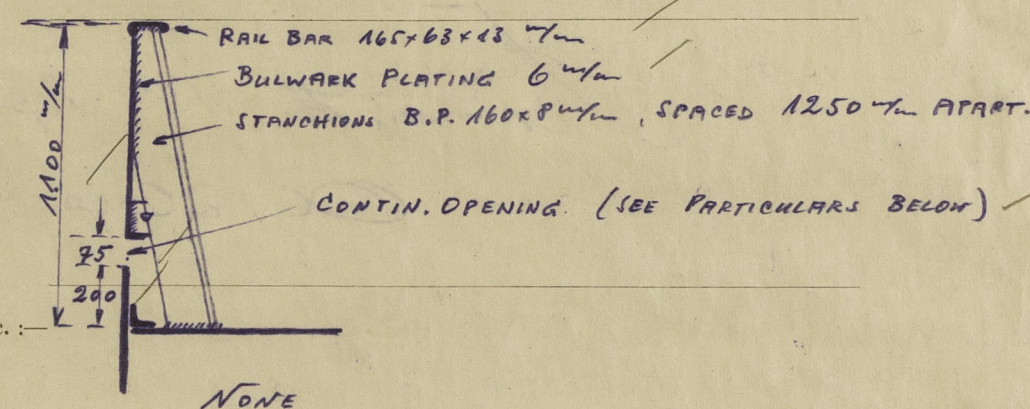 RAIL BAR 165×63×13 m/m
BULWARK PLATING 6 m/m
STANCHIONS B.P. 160×8 m/m, SPACED 1250 m/m APART.
1100 m/m
CONTIN. OPENING. (SEE PARTICULARS BELOW)
75
200
c. :—
NONE